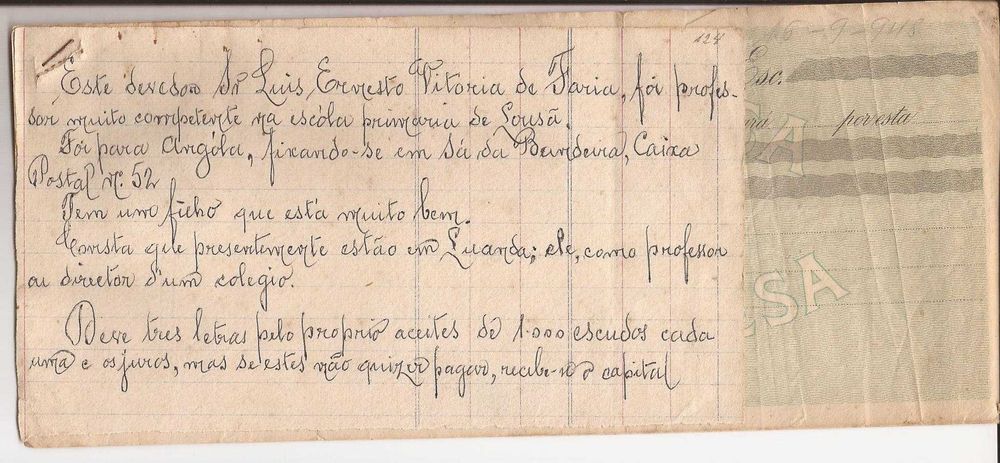 124
16-9-948
Este devedor Sr Luis, Ernesto Vitoria de Faria, foi profes-
sor muito competente na escóla primaria de Lousã.
Foi para Angóla, fixando-se em Sá da Bandeira, Caixa
Postal nº. 52
Tem um ficho que está muito bem.
Consta que presentemente estão em Luanda; ele, como professor
ou director d'um colegio.
Deve tres letras pelo proprio aceites de 1.000 escudos cada
uma e os juros, mas se estes não quizer pagar, recebe-se o capital
Esc.
por esta